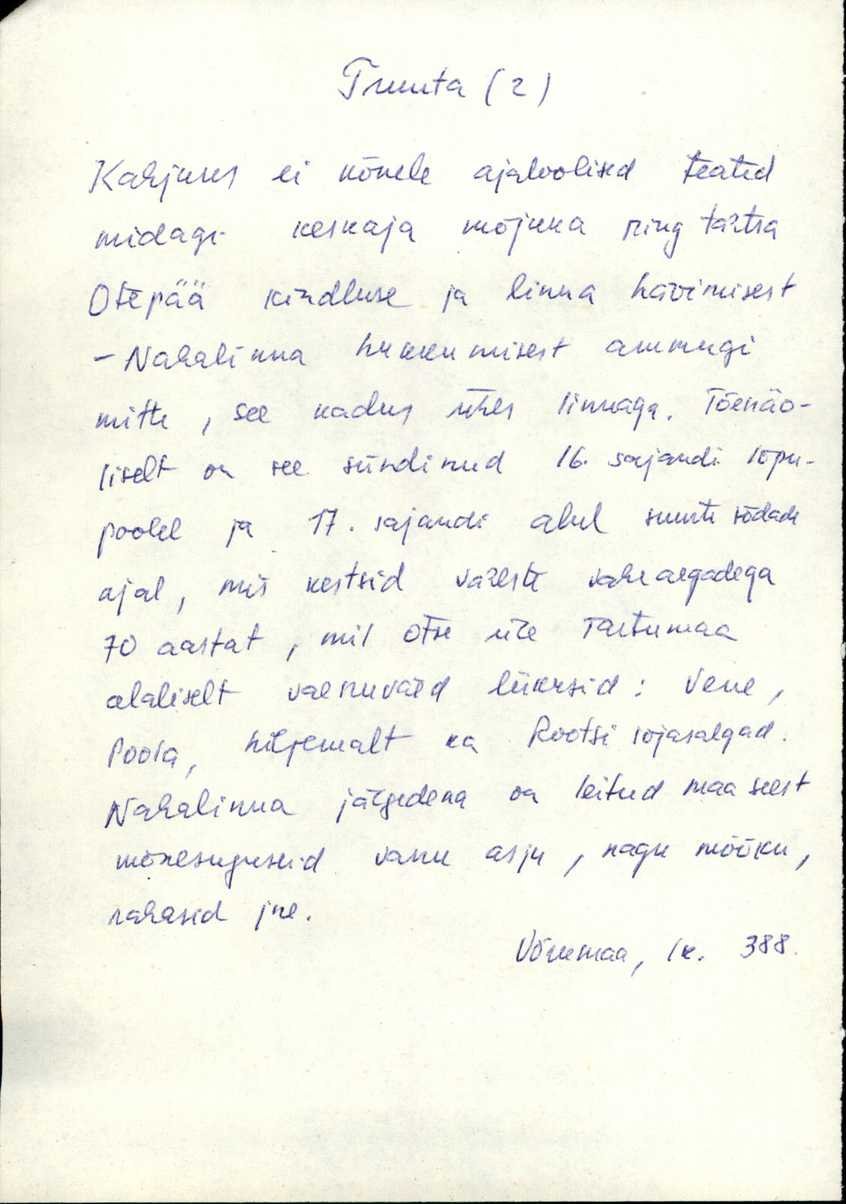 Truuta (2)
Kahjuks ei kõnele ajaloolised teated
midagi keskaja mõjuka ning tärtsa
Otepää kindluse ja linna hävimisest
- Nahalinna hukkumisest ammugi
mitte, see kadus ühes linnaga. Tõenäo-
liselt on see sündinud 16. sajandi lõpu-
poolel ja 17. sajandi alul suurte sõdade
ajal, mis kestsid väikeste vaheaegadega
70 aastat, mil otse üle Tartumaa
alaliselt vaenuväed liikusid: Vene,
Poola, hiljemalt ka Rootsi sõjasalgad.
Nahalinna järgedena on leitud maa seest
mõnesuguseid vanu asju, nagu mõõku,
rahasid jne.
Võrumaa, lk. 388.